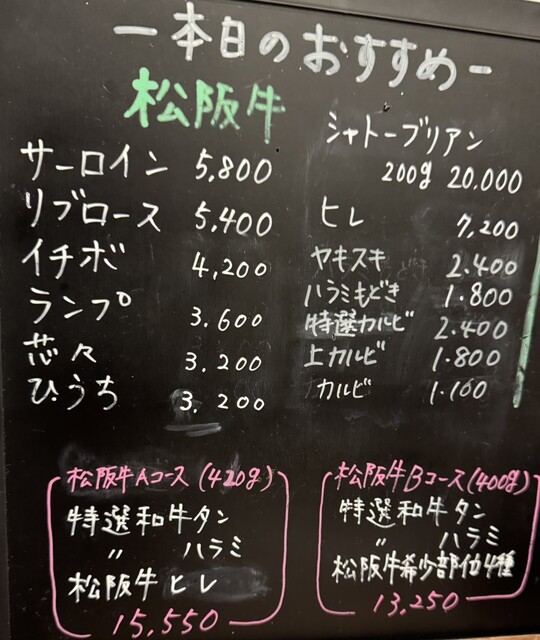 ー本日のおすすめー
松阪牛
サーロイン 5,800
リブロース 5,400
イチボ 4,200
ランプ 3,600
芯々 3,200
ひうち 3,200
シャトーブリアン
200g 20,000
ヒレ 7,200
ヤキスキ 2.400
ハラミもどき 1.800
特選カルビ 2.400
上カルビ 1.800
カルビ 1.100
松阪牛Aコース(420g)
特選和牛タン
〃 ハラミ
松阪牛ヒレ
15,550
松阪牛Bコース(400g)
特選和牛タン
〃 ハラミ
松阪牛希少部位4種
13,250